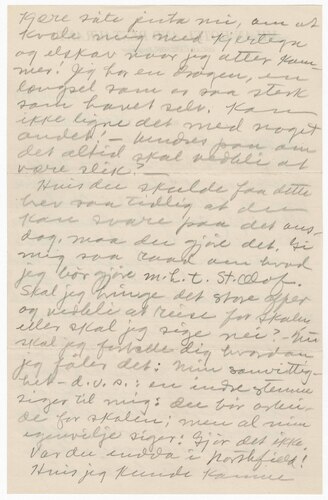 Kjære søte jenta mi, om at
kvele mig med kjertegn
og elskov naar jeg atter kom-
mer! Jeg har en dragen, en
længsel som er saa sterk
som havet selv. Kan
ikke ligne det med noget
andet! – Undres paa om
det altid skal vedbli at
være slik. –
Hvis du skulde faa dette
brev saa tidlig at du
kan svare paa det ons-
dag, maa du gjøre det. Gi
mig saa raad om hvad
jeg bør gjøre m.h.t. St. Olaf.
Skal jeg bringe det store offer
og vedbli at reise for skolen
eller skal jeg sige nei? – Nu
skal jeg fortælle dig hvordan
jeg føler det: Min samvittig-
het – d.v.s.: en indre stemme
siger til mig: du bør arbei-
de for skolen; men al min
egenvilje siger: Gjør det ikke
Var du endda i Northfield!
Hvis jeg kunde komme